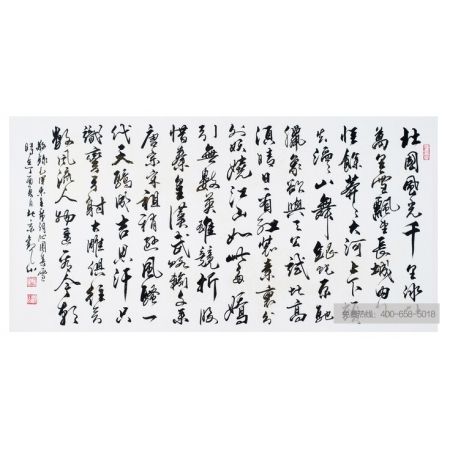 北國風光千里冰
萬里雪飄望長城內
惟餘莽莽大河上下
失滔滔山舞銀蛇原馳
蠟象欲與天公試比高
須晴日看紅裝素裹分
外妖嬈江山如此多嬌
引無數英雄競折腰
惜秦皇漢武略輸文采
唐宗宋祖稍遜風騷一
代天驕成吉思汗只
識彎弓射大雕俱往矣
數風流人物還看今朝
敬錄毛澤東主席詞沁園春雪
免费热线：400-658-5018